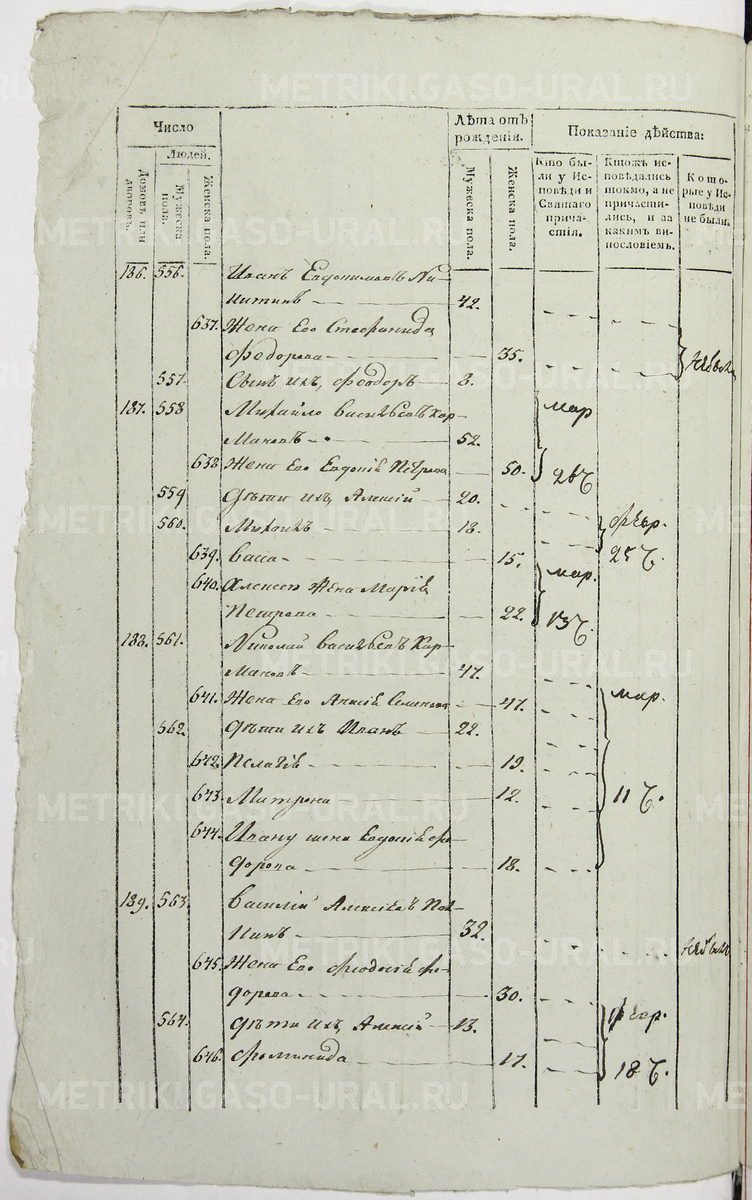 METRIKI.GASO-URAL.RU
Число
Лѣта отъ рожденія.
Показаніе дѣйства:
Людей.
Домовъ или дворовъ.
Мужеска пола.
Женска пола.
Мужеска пола.
Женска пола.
Кто бы-
ли у Ис-
повѣди и
Святаго
прича-
стія.
Ктожъ ис-
повѣдались
токмо, а не
причасти-
лись, и за
какимъ ви-
нословіемъ.
Кото-
рые у Ис-
повѣди
не были.
186. 556. Иванъ Евдокимовъ Ни-
42.
637. Жена Его Стефанида
Федорова 35.
557 Сынъ ихъ, Феодоръ 8.
187. 558 Михайло Васильевъ Кар-
мановъ 52. мар
638 Жена Его Евдокія Петрова 50. 26
559 Дѣти ихъ, Алексій 20.
560. Михаилъ 18. февр.
639. Васса 15. 25
640. Алексею Жена Марія мар.
Петрова 22. 13
188. 561. Николай Васильевъ Кар-
мановъ 47.
641. Жена Его Анисія Семенова 47. мар.
562. Дѣти ихъ Иванъ 22.
642. Пелагія 19.
643. Матрона 12. 11
644. Ивану жена Евдокія Фе-
дорова 18.
189. 563. Василій Алексѣевъ
32.
645. Жена Его Феодосія Фе-
дорова 30.
564. Дѣти ихъ, Алексій 13. февр.
646. Фоминида 17. 18